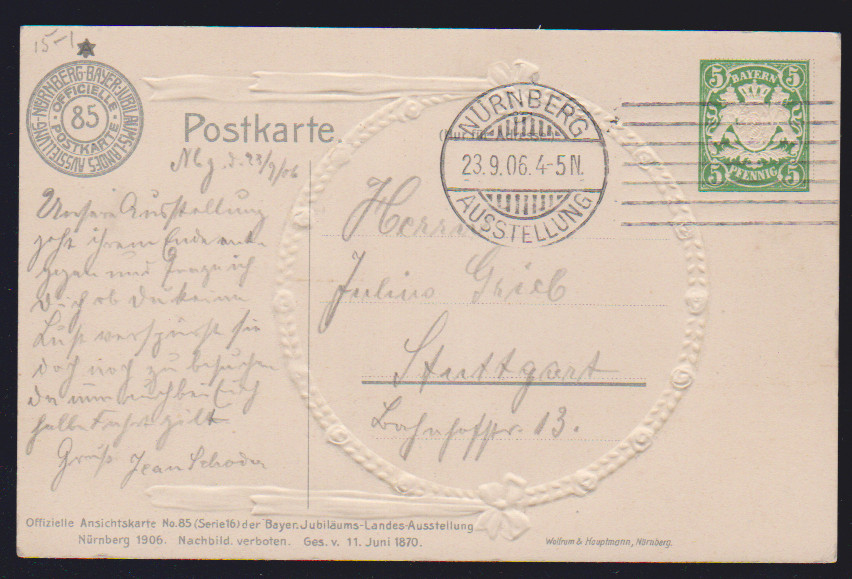 15-1
NÜRNBERG-BAYER-JUBILÄUMS-LANDES-AUSSTELLUNG
OFFICIELLE
85
POSTKARTE
Postkarte.
NÜRNBERG
23.9.06. 4-5 N.
AUSSTELLUNG
5 5
BAYERN
PFENNIG
5 5
Nbg. d. 23/9/06
Unsere Ausstellung
geht ihrem Ende ent-
gegen und frage ich
Dich ob Du keine
Lust verspürst sie
doch noch zu besuchen
da nun auch bei Euch
halbe Fahrt gilt.
Gruß Jean Schoder
Herrn
Julius Grieb
Stuttgart
Bahnhofstr. 13.
Offizielle Ansichtskarte No. 85 (Serie 16) der Bayer. Jubiläums-Landes-Ausstellung
Nürnberg 1906. Nachbild. verboten. Ges. v. 11. Juni 1870.
Wolfrum & Hauptmann, Nürnberg.